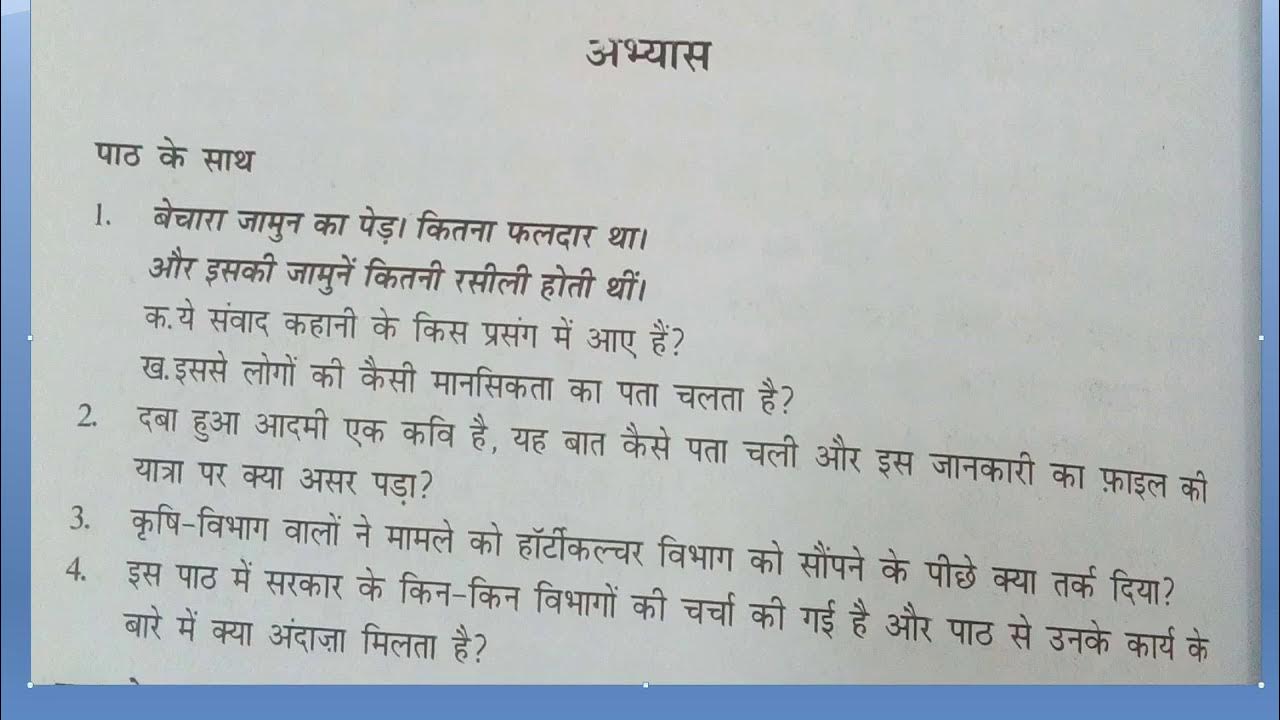 अभ्यास
पाठ के साथ
1. बेचारा जामुन का पेड़। कितना फलदार था।
और इसकी जामुनें कितनी रसीली होती थीं।
क.ये संवाद कहानी के किस प्रसंग में आए हैं?
ख.इससे लोगों की कैसी मानसिकता का पता चलता है?
2. दबा हुआ आदमी एक कवि है, यह बात कैसे पता चली और इस जानकारी का फ़ाइल की
यात्रा पर क्या असर पड़ा?
3. कृषि-विभाग वालों ने मामले को हॉर्टीकल्चर विभाग को सौंपने के पीछे क्या तर्क दिया?
4. इस पाठ में सरकार के किन-किन विभागों की चर्चा की गई है और पाठ से उनके कार्य के
बारे में क्या अंदाज़ा मिलता है?